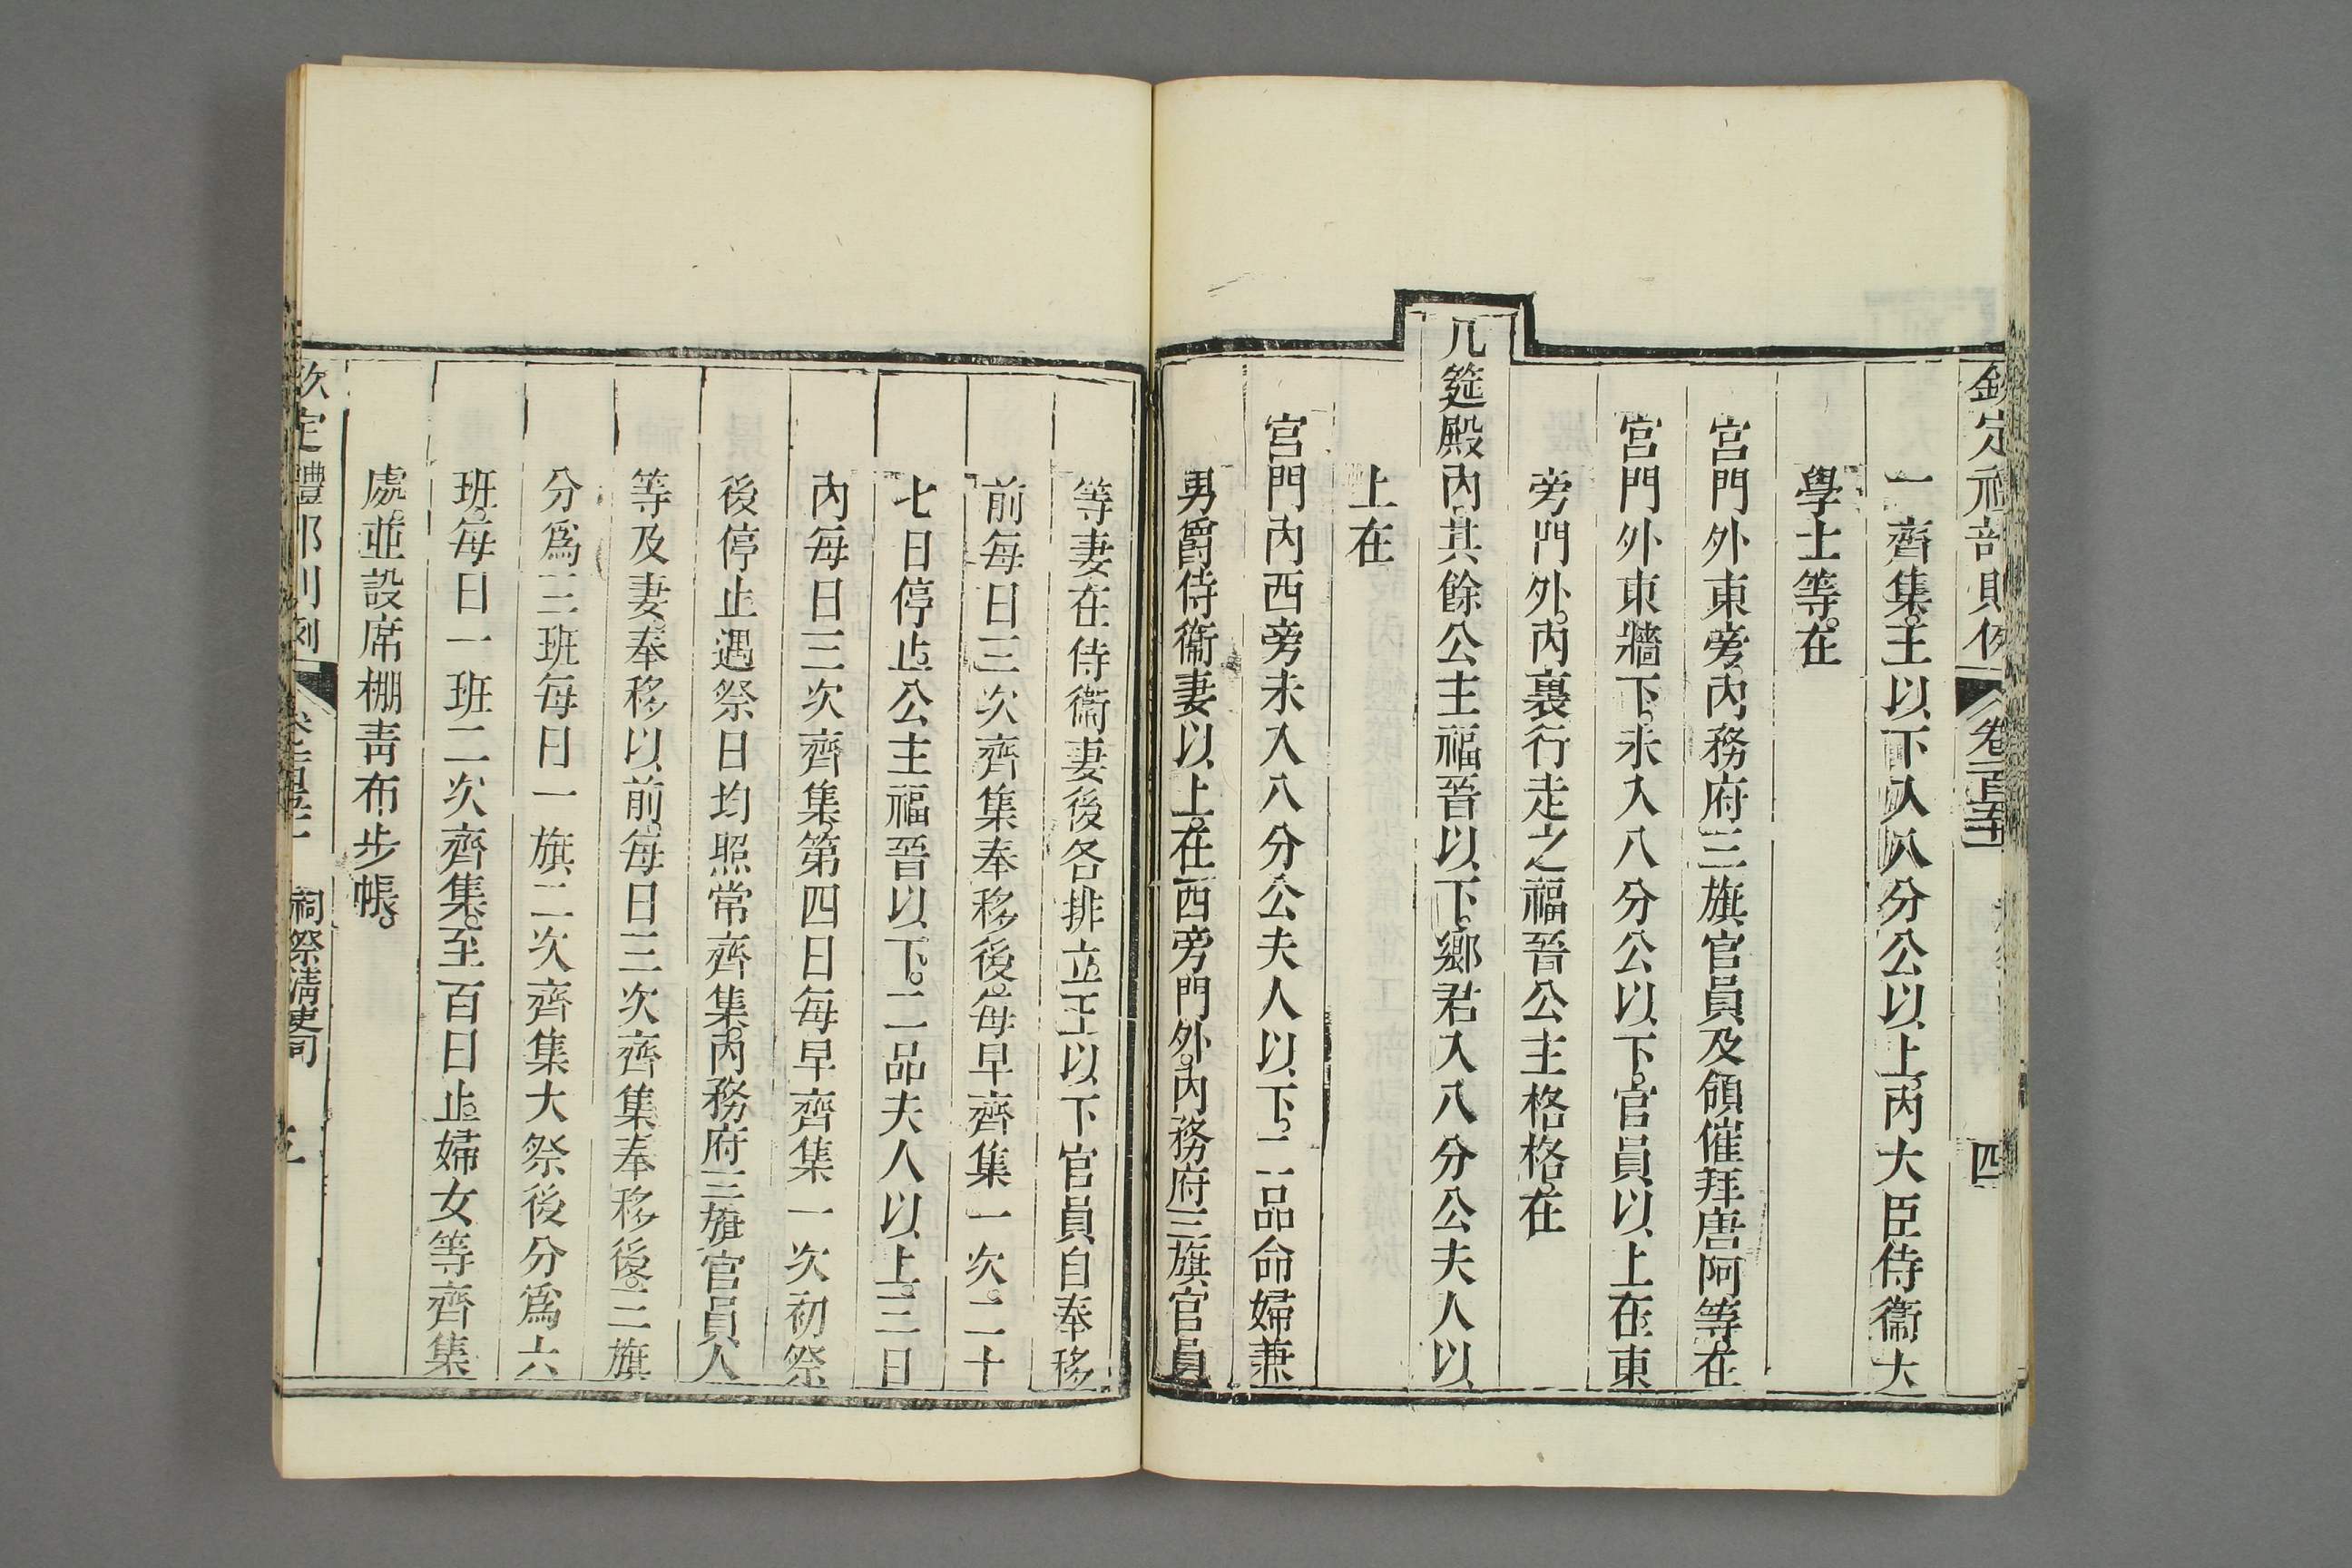 欽定禮部則例 卷一百五十 四
一齊集。王以下入八分公以上。內大臣侍衞大
學士等。在
宮門外東旁。內務府三旗官員及領催拜唐阿等。在
宮門外東牆下。未入八分公以下。官員以上。在東
旁門外。內裏行走之福晉公主格格。在
几筵殿內。其餘公主福晉以下。鄉君入八分公夫人以
上在
宮門內西旁未入八分公夫人以下。二品命婦兼
男爵侍衞妻以上。在西旁門外。內務府三旗官員
等妻在侍衞妻後各排立。王以下官員自奉移
前每日三次齊集奉移後。每早齊集一次。二十
七日停止。公主福晉以下。二品夫人以上。三日
內每日三次齊集。第四日每早齊集一次初祭
後停止遇祭日均照常齊集。內務府三旗官員人
等及妻。奉移以前。每日三次齊集奉移後。三旗
分爲三班每日一旗二次齊集大祭後分爲六
班。每日一班二次齊集。至百日止。婦女等齊集
處。並設席棚靑布步帳。
欽定禮部則例 祠祭淸吏司